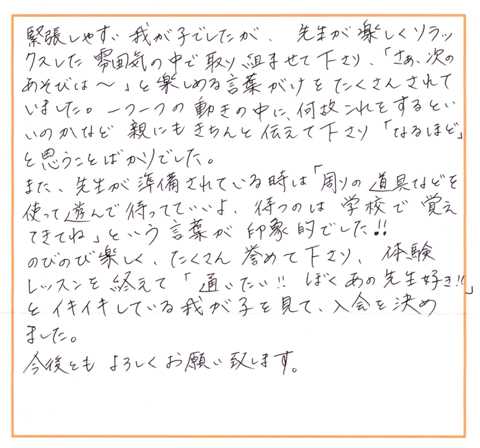 緊張しやすい我が子でしたが、先生が楽しくリラッ
クスした雰囲気の中で取り組ませて下さり、「さぁ、次の
あそびは～」と楽しめる言葉がけをたくさんされて
いました。一つ一つの動きの中に、何故これをするとい
いのかなど親にもきちんと伝えて下さり「なるほど」
と思うことばかりでした。
また、先生が準備されている時は「周りの道具などを
使って遊んで待ってていいよ、待つのは学校で覚え
てきてね」という言葉が印象的でした!!
のびのび楽しく、たくさん誉めて下さり、体験
レッスンを終えて「通いたい!!ぼくあの先生好き!!」
とイキイキしている我が子を見て、入会を決め
ました。
今後ともよろしくお願い致します。